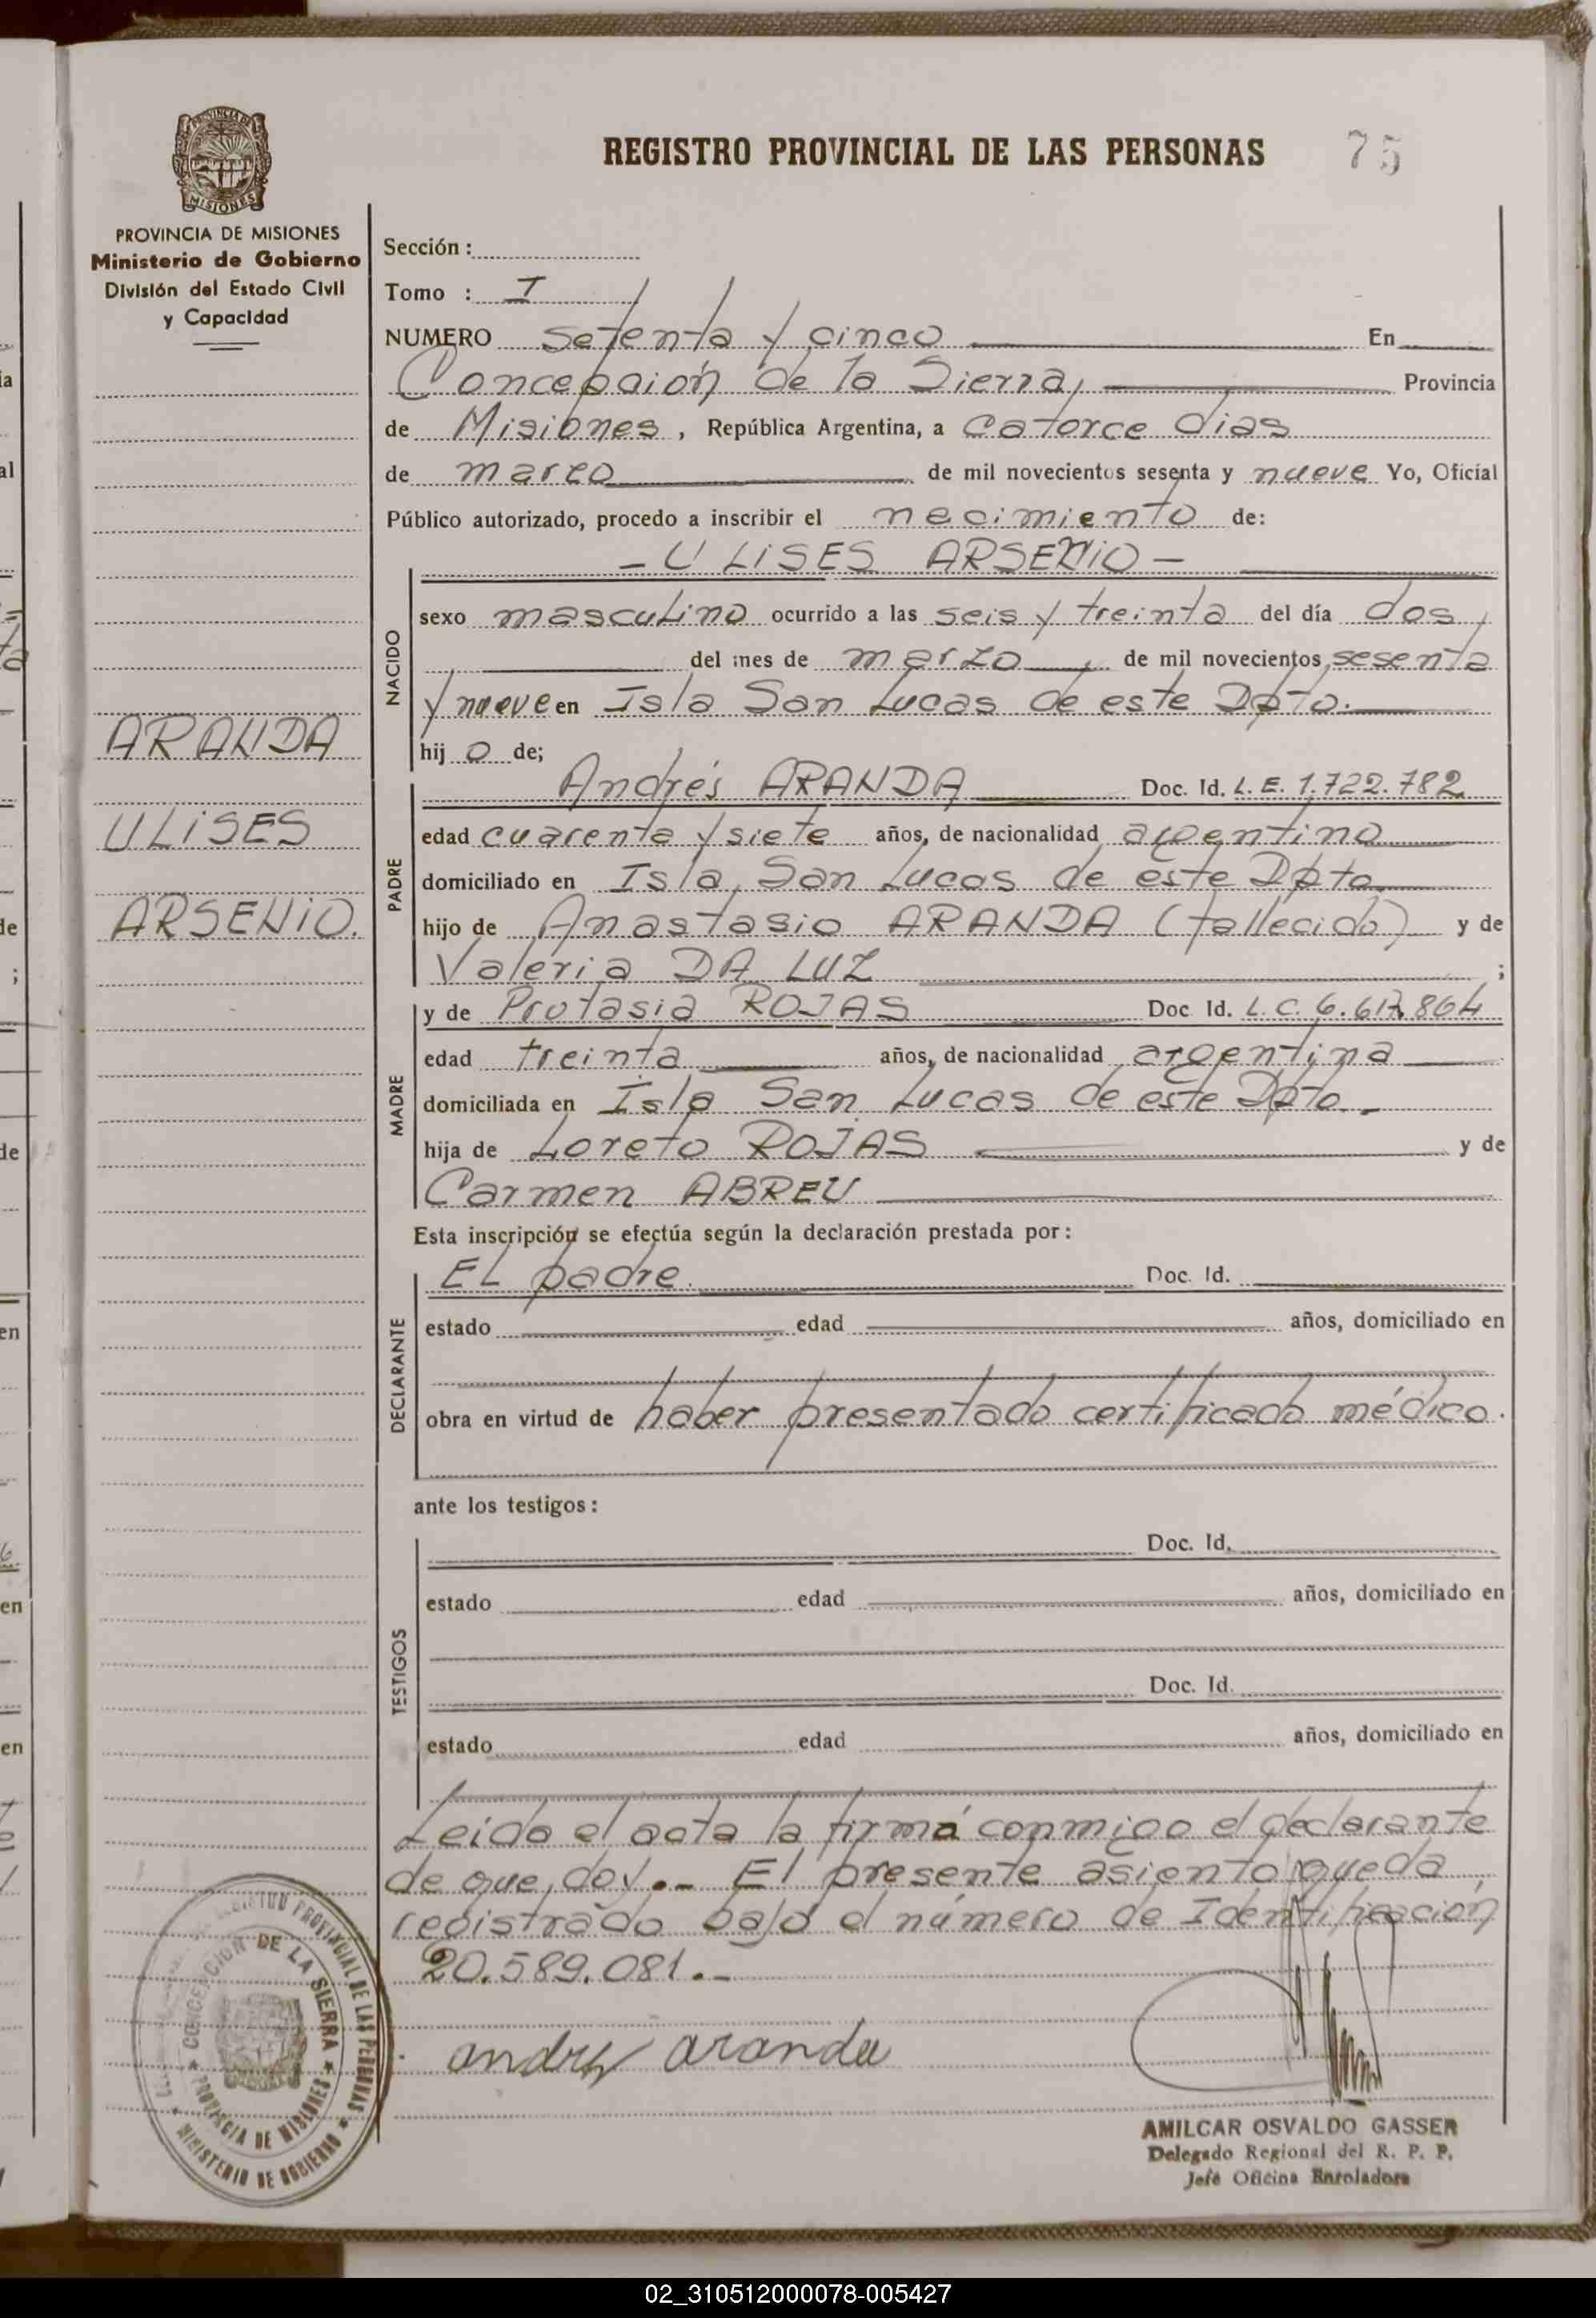 REGISTRO PROVINCIAL DE LAS PERSONAS 75
PROVINCIA DE MISIONES
Ministerio de Gobierno
División del Estado Civil
y Capacidad
ARANDA
ULISES
ARSENIO.
Sección :
Tomo : I
NUMERO setenta y cinco En
Concepción de la Sierra, Provincia
de Misiones, República Argentina, a catorce días
de marzo de mil novecientos sesenta y nueve Yo, Oficial
Público autorizado, procedo a inscribir el necimiento de:
- ULISES ARSENIO -
NACIDO
sexo masculino ocurrido a las seis y treinta del día dos
del mes de marzo, de mil novecientos sesenta
y nueve en Isla San Lucas de este Dpto.
hij o de;
PADRE
Andrés ARANDA Doc. Id. L.E. 1.722.782
edad cuarenta y siete años, de nacionalidad argentino
domiciliado en Isla San Lucas de este Dpto.
hijo de Anastasio ARANDA (fallecido) y de
Valeria DA LUZ ;
MADRE
y de Protasia ROJAS Doc Id. L.C.
edad treinta años, de nacionalidad argentina
domiciliada en Isla San Lucas de este Dpto.
hija de Loreto ROJAS y de
Carmen ABREU
Esta inscripción se efectúa según la declaración prestada por :
DECLARANTE
EL padre. Doc. Id.
estado edad años, domiciliado en
obra en virtud de haber presentado certificado médico.
ante los testigos :
TESTIGOS
Doc. Id.
estado edad años, domiciliado en
Doc. Id.
estado edad años, domiciliado en
Leída el acta la firmá conmigo el declarante
de que doy.- El presente asiento queda
registrado bajo el número de Identificación
20.589.081.-
andres aranda
AMILCAR OSVALDO GASSER
Delegado Regional del R. P. P.
Jefe Oficina Enroladora
PROVINCIAL DE LAS PERSONAS
CONCEPCION DE LA SIERRA
PROVINCIA DE MISIONES
MINISTERIO DE GOBIERNO
02_310512000078-005427